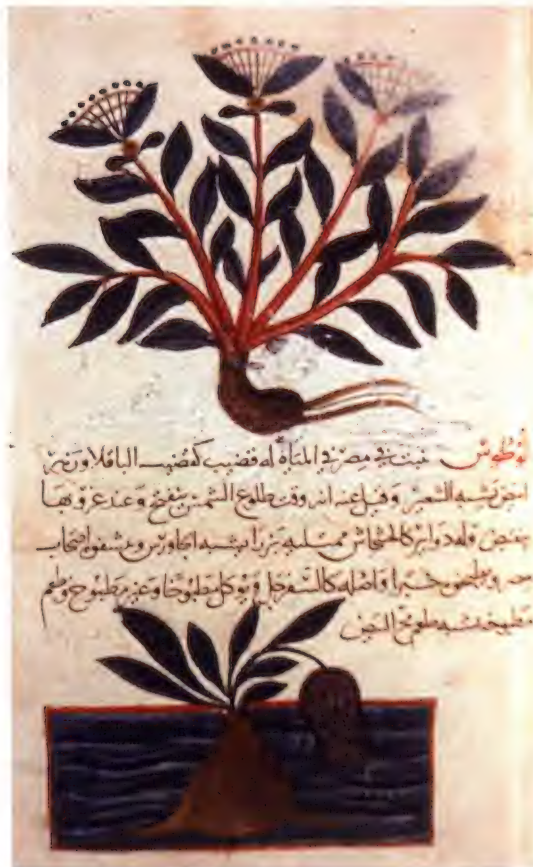 لوطوس ينبت في مصر في المياه له قضيب كقضيب الباقلا وزهر
ابيض يشبه السوسن وقيل عنه انه وقت طلوع الشمس ينفتح وعند غروبها
ينقبض وله رؤس كالخشخاش ممتليه بزرا يشبه الجاورس ويجففوه اصحاب
مصر ويطحن خبزا واصله كالسفرجل ويوكل مطبوخا وغير مطبوخ وطعم
مطبوخه يشبه طعم مح البيض